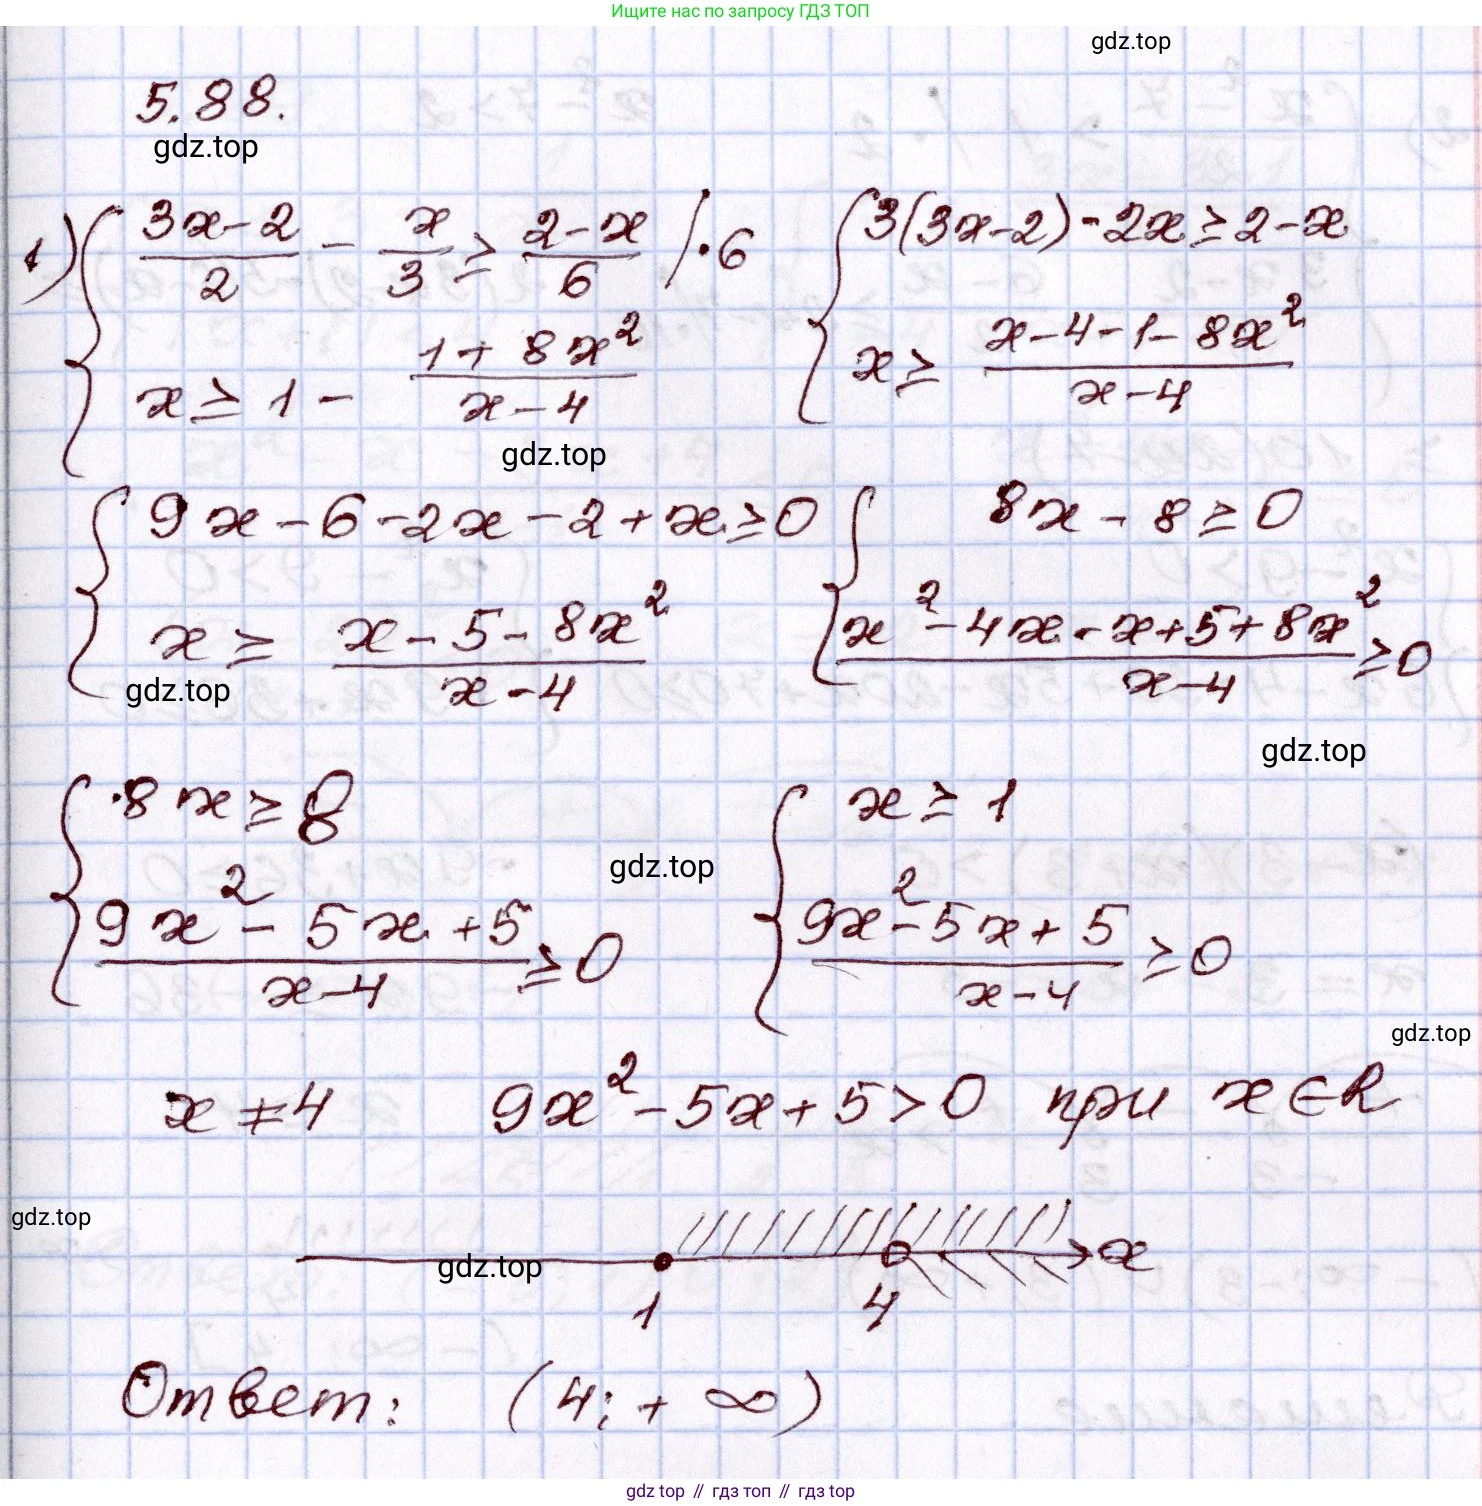 Ищите нас по запросу ГДЗ ТОП
gdz.top
5.88.
gdz.top
1) { (3x-2)/2 - x/3 ≥ (2-x)/6 /·6   { 3(3x-2)-2x ≥ 2-x
x ≥ 1 - (1+8x²)/(x-4)   x ≥ (x-4-1-8x²)/(x-4)
gdz.top
{ 9x-6-2x-2+x ≥ 0   { 8x-8 ≥ 0
x ≥ (x-5-8x²)/(x-4)   (x²-4x-x+5+8x²)/(x-4) ≥ 0
gdz.top
gdz.top
{ 8x ≥ 8   { x ≥ 1
gdz.top
(9x²-5x+5)/(x-4) ≥ 0   (9x²-5x+5)/(x-4) ≥ 0
gdz.top
x ≠ 4   9x²-5x+5 > 0 при x ∈ R
gdz.top
gdz.top
x
1   4
Ответ: (4; +∞)
gdz.top // гдз топ // гдз top